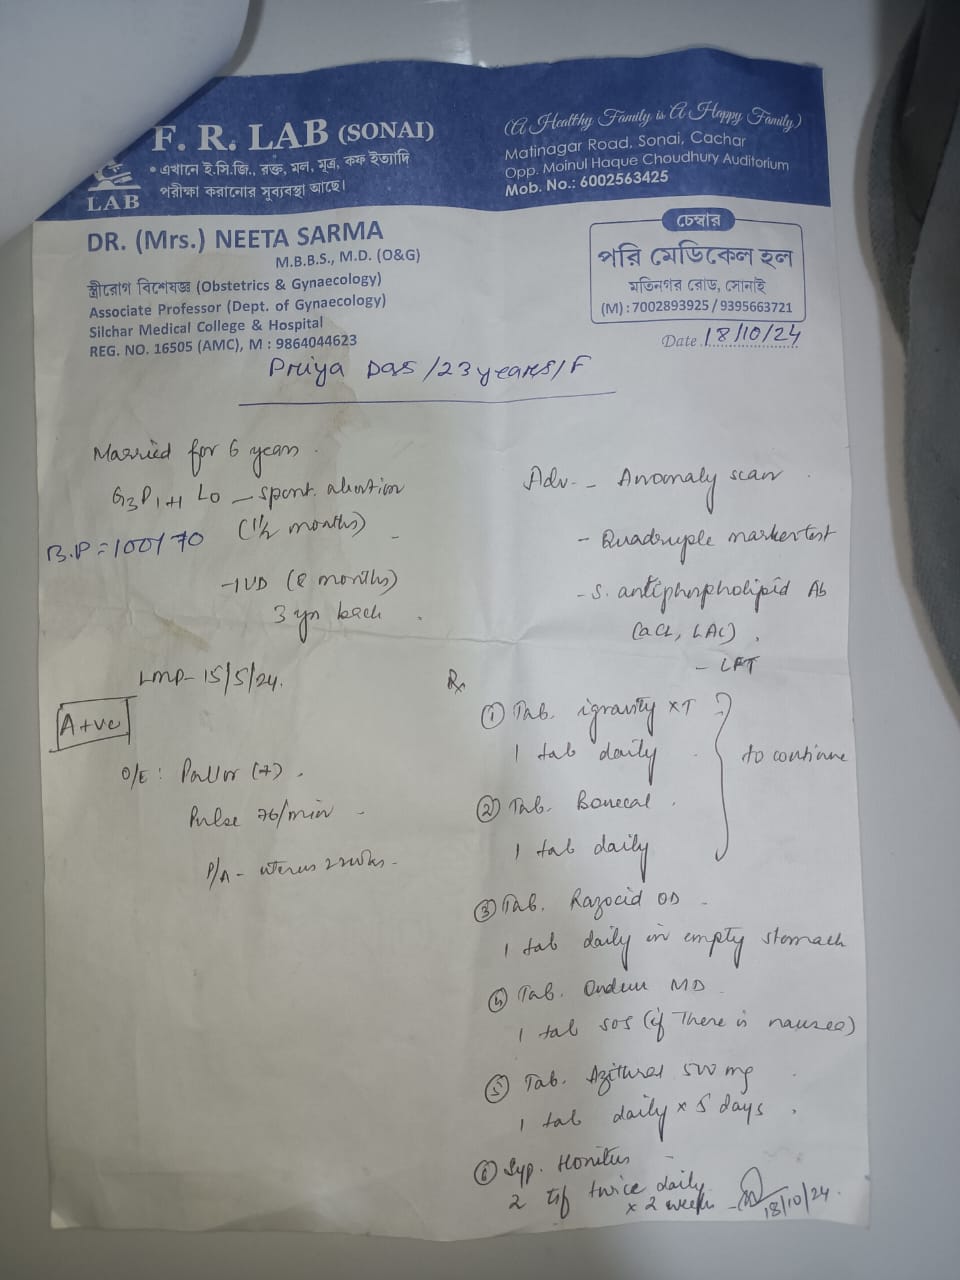 F. R. LAB (SONAI)
• এখানে ই.সি.জি., রক্ত, মল, মূত্র, কফ ইত্যাদি
পরীক্ষা করানোর সুব্যবস্থা আছে।
LAB
(A Healthy Family is A Happy Family)
Matinagar Road, Sonai, Cachar
Opp. Moinul Haque Choudhury Auditorium
Mob. No.: 6002563425
DR. (Mrs.) NEETA SARMA
M.B.B.S., M.D. (O&G)
স্ত্রীরোগ বিশেষজ্ঞ (Obstetrics & Gynaecology)
Associate Professor (Dept. of Gynaecology)
Silchar Medical College & Hospital
REG. NO. 16505 (AMC), M : 9864044623
চেম্বার
পরি মেডিকেল হল
মতিনগর রোড, সোনাই
(M) : 7002893925 / 9395663721
Date 18/10/24
Priya Das /23 years/F
Married for 6 years
G3P1+1 L0 - spont. abortion
(1½ months)
B.P = 100/70
- IUD (8 months)
3 yrs back
LMP - 15/5/24.
A+ve
O/E : Pallor (+)
Pulse 76/min
P/A - uterus 22wks
Adv. - Anomaly scan
- Quadruple marker test
- S. antiphospholipid Ab
(aCL, LAC)
- LFT
Rx
① Tab. igravity XT
1 tab daily
② Tab. Bonecal
1 tab daily
to continue
③ Tab. Razocid OD
1 tab daily in empty stomach
④ Tab. Ondem MD
1 tab SOS (if There is nausea)
⑤ Tab. Azithral 500 mg
1 tab daily x 5 days
⑥ Syp. Honitus
2 tsf twice daily
x 2 weeks
18/10/24